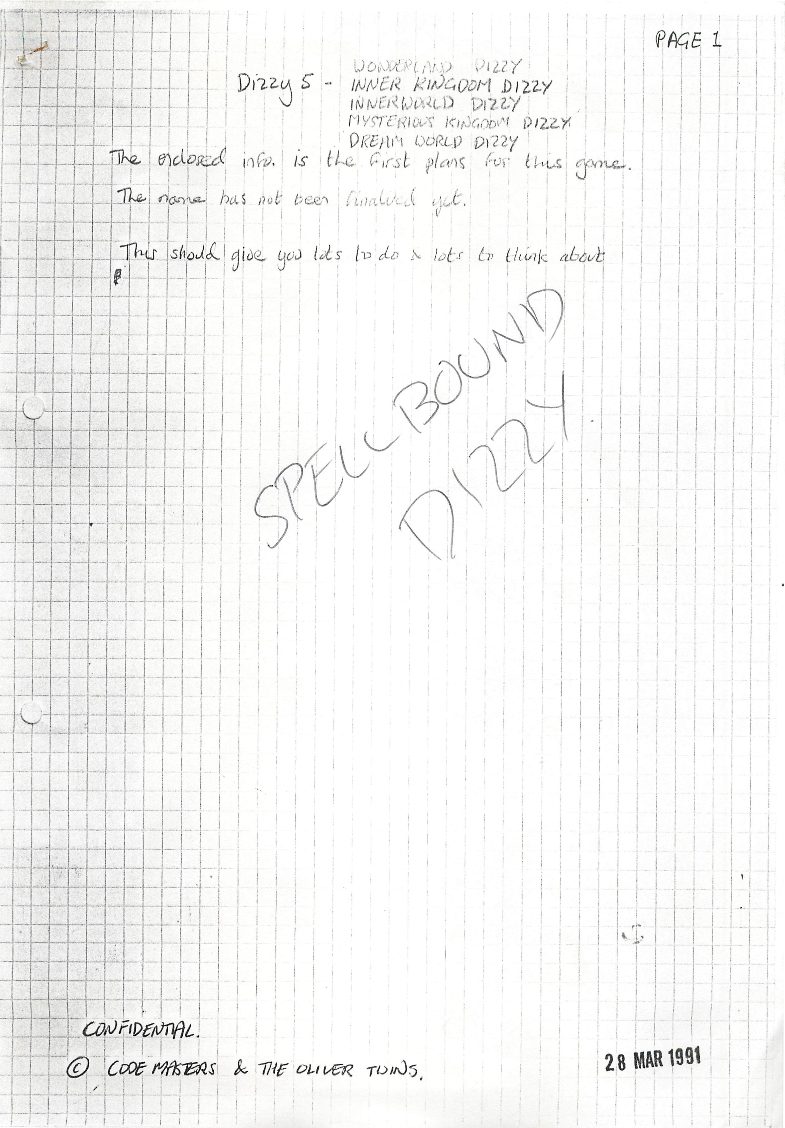 PAGE 1
WONDERLAND DIZZY
Dizzy 5 - INNER KINGDOM DIZZY
INNERWORLD DIZZY
MYSTERIOUS KINGDOM DIZZY
DREAM WORLD DIZZY
The enclosed info. is the first plans for this game.
The name has not been finalised yet.
This should give you lots to do & lots to think about
SPELLBOUND
DIZZY
CONFIDENTIAL.
© CODE MASTERS & THE OLIVER TWINS.
28 MAR 1991